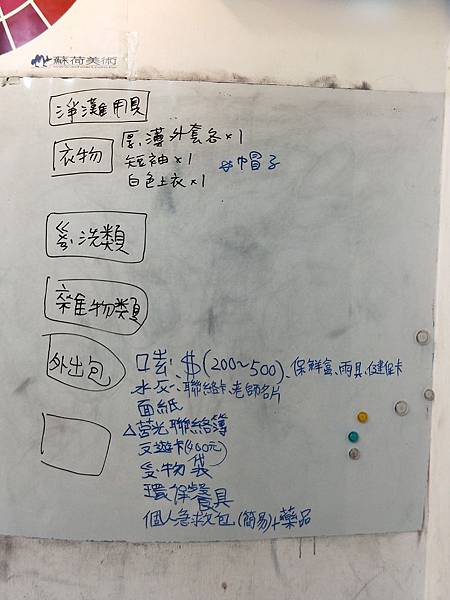 蘇荷美術
淨灘用具
衣物
厚、薄外套各×1
短袖×1
白色上衣×1
帽子
盥洗類
雜物類
外出包
口苦、$(200~500)、保鮮盒、雨具、健保卡
水、聯絡卡、老師名片
面紙
△螢光聯絡簿
交遊卡(400元)
購物袋
環保餐具
個人急救包(簡易)+藥品